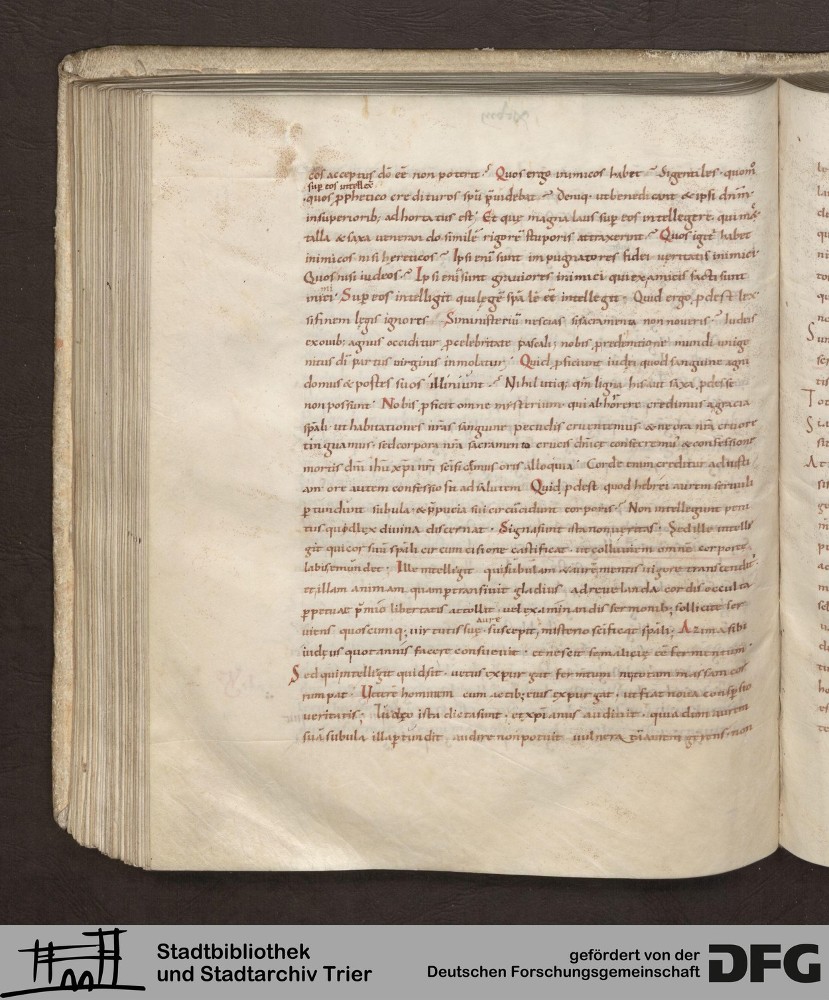 eos acceptus dõ eẽ non poterit. Quos ergo inimicos habet. Si gentiles. quomõ
sup eos intellex
quos pphetico credituros spũ puidebat. Deniq. ut benedicant & ipsi dnm
insuperiorib; ad hortatus est. Et que magna laus sup eos intellegere. qui me
talla & saxa uenerando simile rigorẽ stuporis attraxerint. Quos igit habet
inimicos nisi hereticos. Ipsi eni sunt impugnatores fidei ueritatis inimici
Quos nisi iudeos. Ipsi eni sunt grauiores inimici qui ex amicis facti sunt
inici. Sup eos intelligit qui legẽ spãlẽ eẽ intellegit. Quid ergo pdest lex
si finem legis ignores. Si ministeriũ nescias si sacramenta non noueris. Iudeis
ex ouib; agnus occiditur p celebritate pascali; nobis predemtione mundi unige
nitus di partus uirginis inmolatur. Quid pficiunt iudei quod sanguine agni
domus & postes suos illiniunt. Nihil utiq; qm ligna his aut saxa pdesse
non possunt. Nobis pficit omne mysterium. qui abhorrere credimus a gracia
spãli. ut habitationes nras sanguine pecudis cruentemus & ne ora nra cruore
tinguamus. sed corpora nra sacramento crucis dnice consecremus & confessione
mortis dni ihu xpi nri scificemus oris alloquia. Corde enim creditur ad iusti
am. ore autem confessio fit ad salutem. Quid pdest quod hebrei aurem seruuli
ptundunt subula. & ppucia sui circucidunt corporis. Non intellegunt peni
tus quid lex diuina discernat. Signa sunt ista non ueritas. Sed ille intelle
git qui cor suũ spãli circumcisione castificat. ut colluuiem omnẽ corporee
labis emundet. Ille intellegit qui subulam & aurẽ mentis uigore transcendit.
et illam animam quam ptransiuit gladius. ad reuelanda cordis occulta
ppetuae pmio libertatis attollit. uel examinandis sermonib; sollicite ser
aure
uiens quoscumq; uirtutis sue suscepit, misterio scificat spãli. Azima sibi
iudeus quotannis facere consueuit. et nescit se malicie eẽ fermentum
Sed qui intelligit quid sit. uetus expurgat fermtum ne totam massam cor
rumpat. Uetere hominem cum actib; eius expurgat. ut fiat noua consparsio
ueritatis; Iudeo ista dicta sunt. et xpianus audiuit. quia dum aurem
suã subula illa ptundit. audire non potuit uulnera piaurem gerens. non
Stadtbibliothek
und Stadtarchiv Trier
gefördert von der
Deutschen Forschungsgemeinschaft
DFG